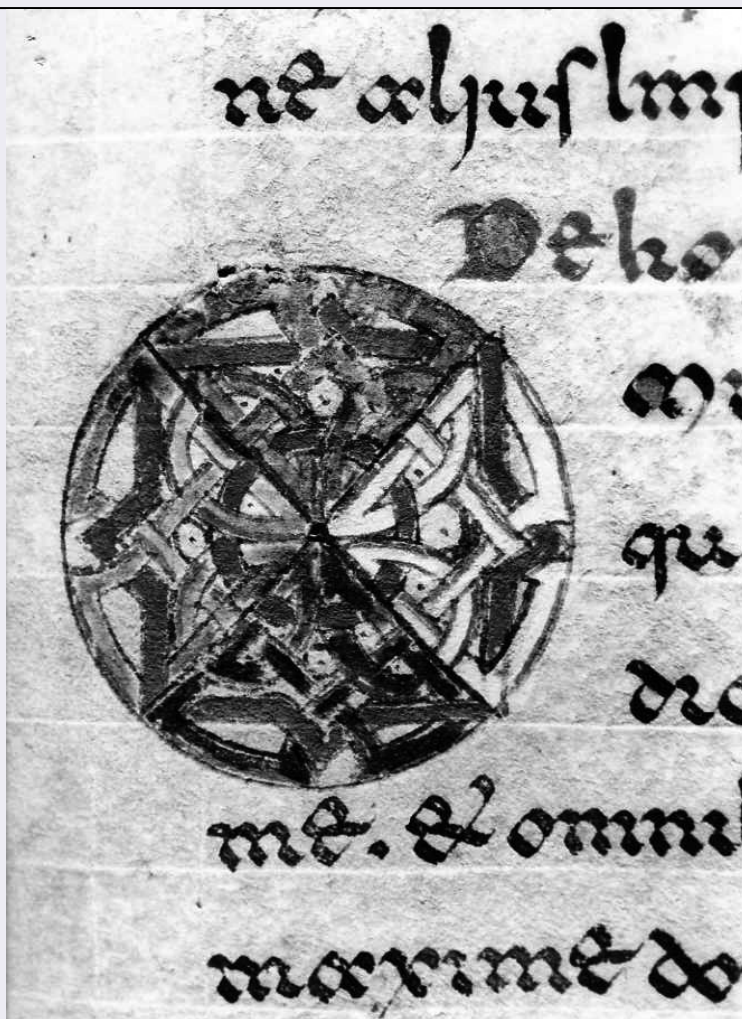 ne alius imp
De ho
O m
qu
di
me. & omni
maxime do